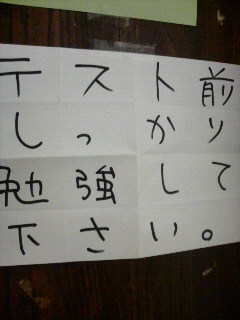 テスト前
しっかり
勉強して
下さい。